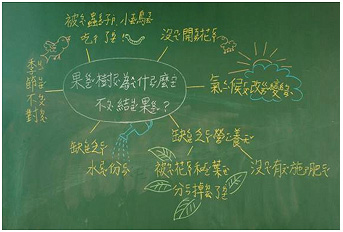 被蟲子、小鳥
吃了！
沒開花
季節不對
果樹為什麼
不結果？
氣候改變
缺乏
水份
缺乏營養
被花和葉
分掉了
沒有施肥